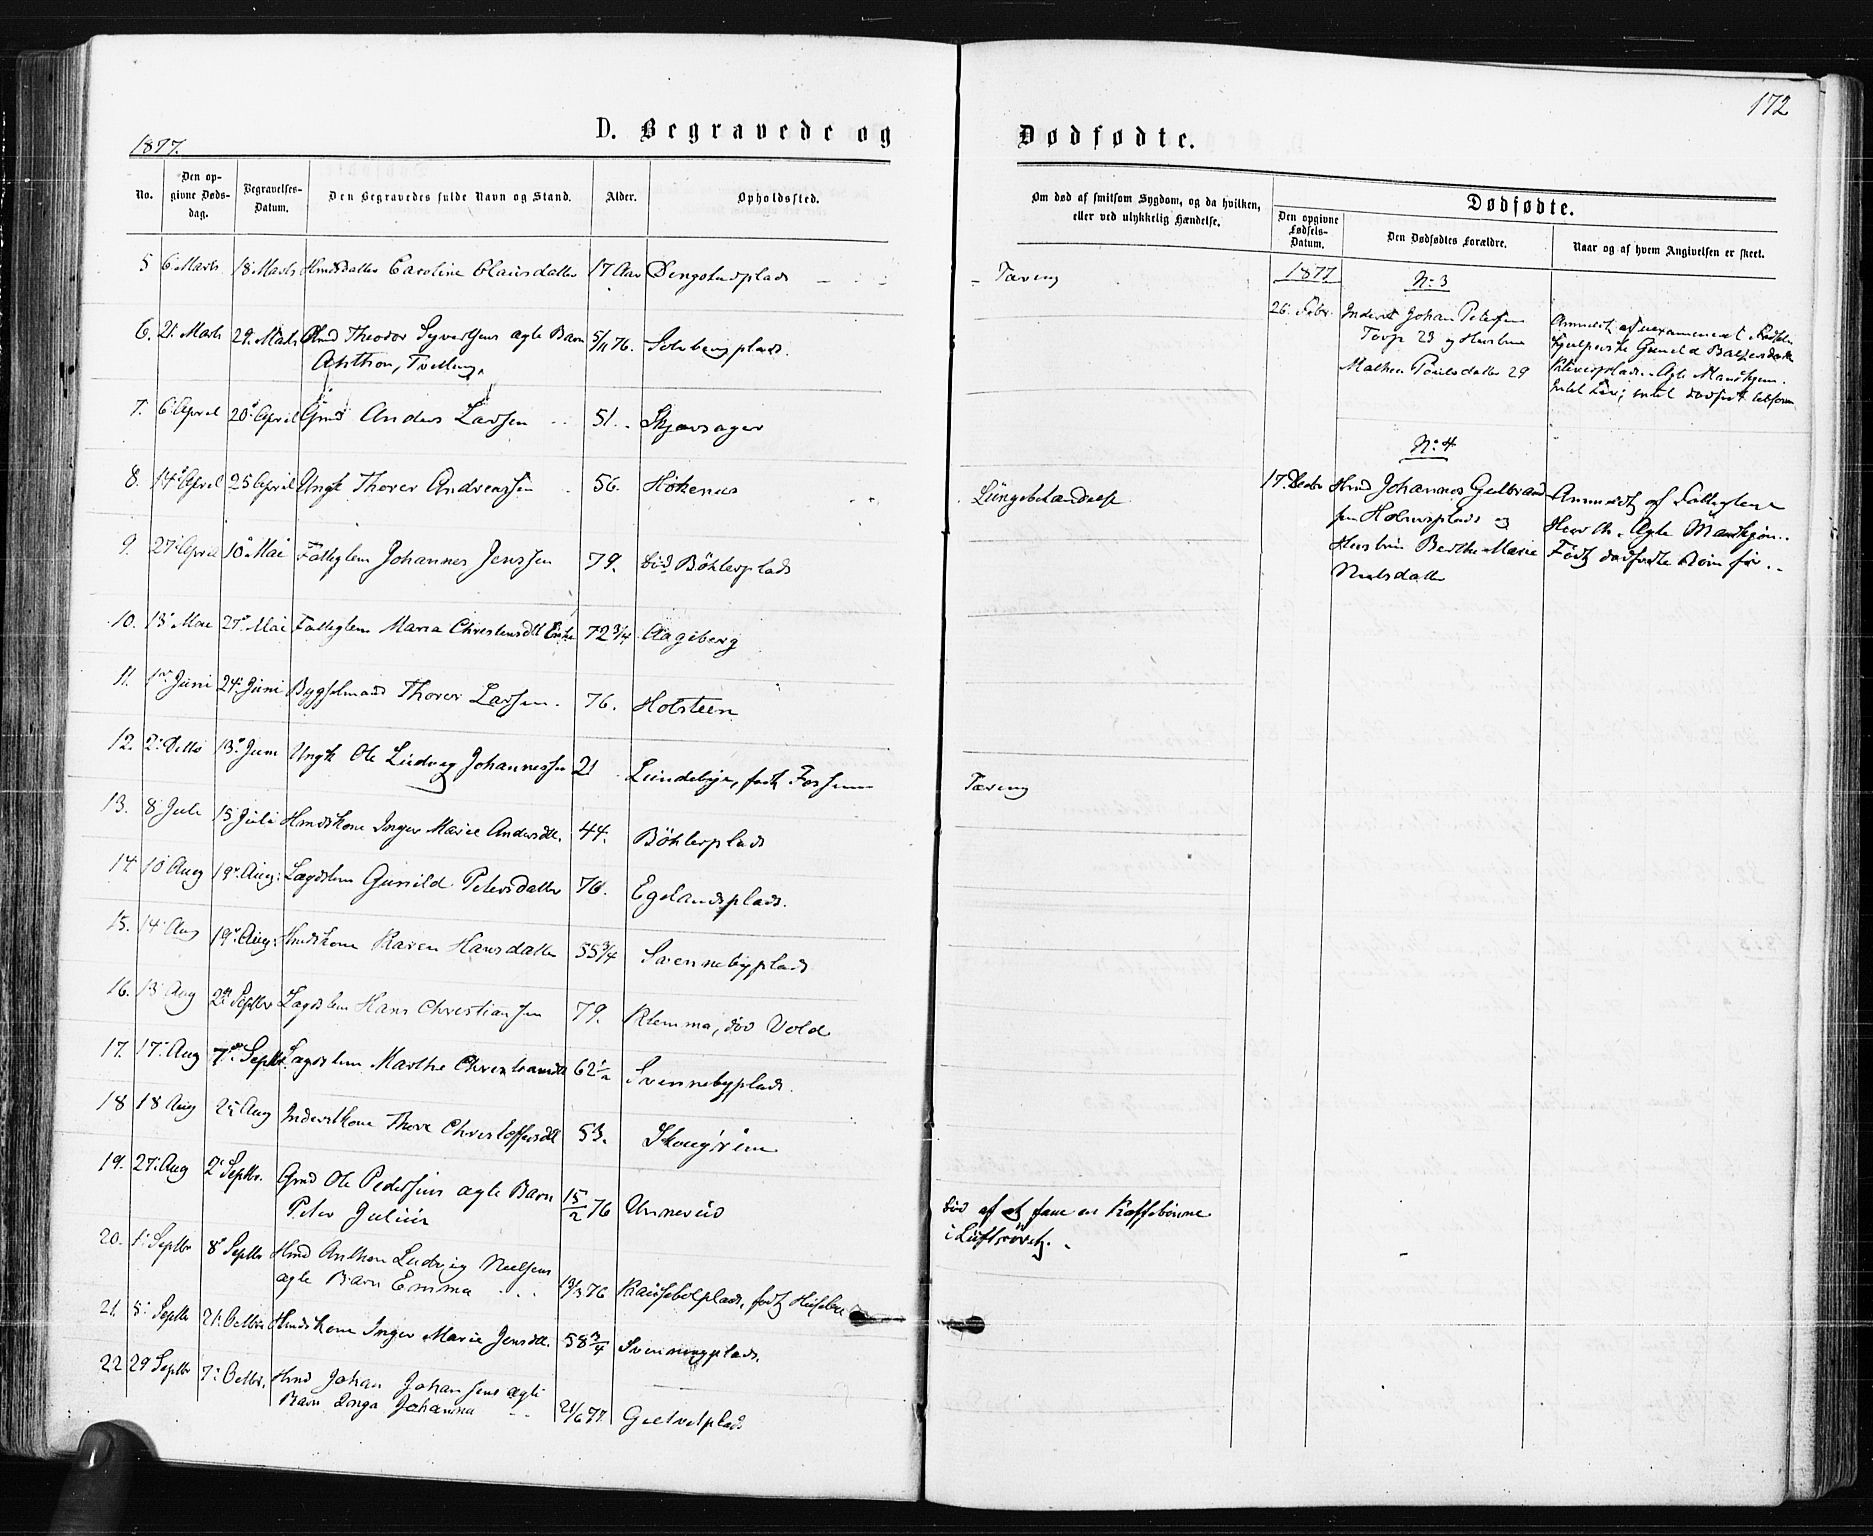 172
1877.
D. Begravede og Dødfødte.
No.
Den opgivne Dødsdag.
Begravelses-Datum.
Den Begravedes fulde Navn og Stand.
Alder.
Opholdssted.
Om død af smitsom Sygdom, og da hvilken, eller ved ulykkelig Hændelse.
Dødfødte.
Den opgivne Fødsels-Datum.
Den Dødfødtes Forældre.
Naar og af hvem Angivelsen er skeet.
5 6 Marts 18 Marts Hmdsdatter Caroline Clausdatter 17 Aar Dingstadplads Tæring
6. 21. Marts 29. Marts Hmd Theodor Syvertsens ægte Barn 5/11 76. Solbergplads.
Anthon, Tvilling
7. 6 April 20 April Gmd Anders Larsen 51. Skjørsager
8. 14 April 25 April Ungk Thorer Andreassen 56. Hökenes Lungebetændelse
9. 27 April 10 Mai Fattiglem Johannes Jenssen 79. död Böhlerplads
10. 13 Mai 27 Mai Fattiglem Maria Christensdtt Enke 72 3/4 Aagiberg
11. 1 Juni 24. Juni Bygselmand Thorer Larsen. 76. Holsteen
12. 2. Ditto 13. Juni Ungk Ole Ludvig Johannessen 21 Lundebye, født Fossum Tæring
13. 8 Juli 15 Juli Hmdskone Inger Marie Andersdtt. 44. Böhlerplads
14. 10 Aug 19. Aug. Lægdslem Gunild Petersdatter 70. Egelandsplads.
15. 14 Aug 19. Aug. Hmdskone Karen Hansdatter 55 3/4 Svennebyplads
16. 13 Aug 2 Septbr Lægdslem Hans Christiansen 79. Klemma, död Vold
17. 17. Aug 7. Septbr. Lægdslem Marthe Christiansdtt 62 1/2 Svennebyplads.
18 18 Aug 25 Aug Inderstkone Thore Christoffersdtt 53. Skougrim
19. 27. Aug 2 Septbr. Gmd Ole Pedersens ægte Barn 15/2 76 Unnerud død af at faae en Kaffebønne
Peter Julius i Luftrøret.
20. 1. Septbr 8 Septbr Hmd Anthon Ludvig Nielsens
ægte Barn Emma 19/3 76 födt Husebye
21. 5. Septbr 21. Octbr Hmdskone Inger Marie Jensdtt. 58 3/4 Svenningplads.
22 29 Septbr 7. Octbr. Hmd Johan Johansens ægte
Barn Inga Johanna 21/6 77.
1877
No 3
26. Febr. Inderst Johan Petersen
Torp 23 og Hustru
Mathea Poulsdatter 29
Anmeldt af uexamineret Fødselshjælperske Gunild
ægte Mandkjøn.
No 4
17. Decbr Hmd Johannes Gulbrandsen Holmsplads og
Hustru Berthe Marie
Nielsdatter
Anmeldt af Fattiglem
ægte Mandkjön.
Födt dødfødte Börn før.